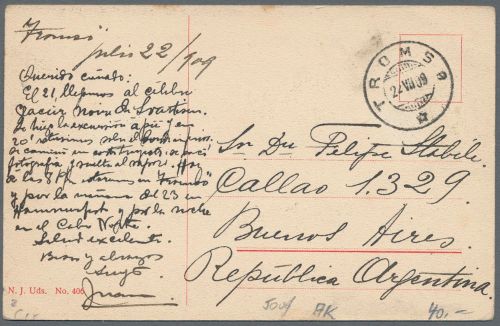 Tromsö
julio 22/909
Querido cuñado:
El 21, llegamos al célebre
glacier de Svartisen.
Se hizo la excursión a pié y en
20' estuvimos sobre el
de camino
fotografía y vuelta al vapor. Hoy
a las 3 P.M. estamos en Tromsö
y por la mañana del 23 en
Hammerfest y por la noche
en el Cabo Norte.
Salud excelente.
Besos y abrazos
suyo
Juan
N. J. Uds. No. 406
TROMSØ
22 VII 09
Sor Dn Felipe Stabile.
Callao 1.329.
Buenos Aires.
República Argentina.
AK
40.-